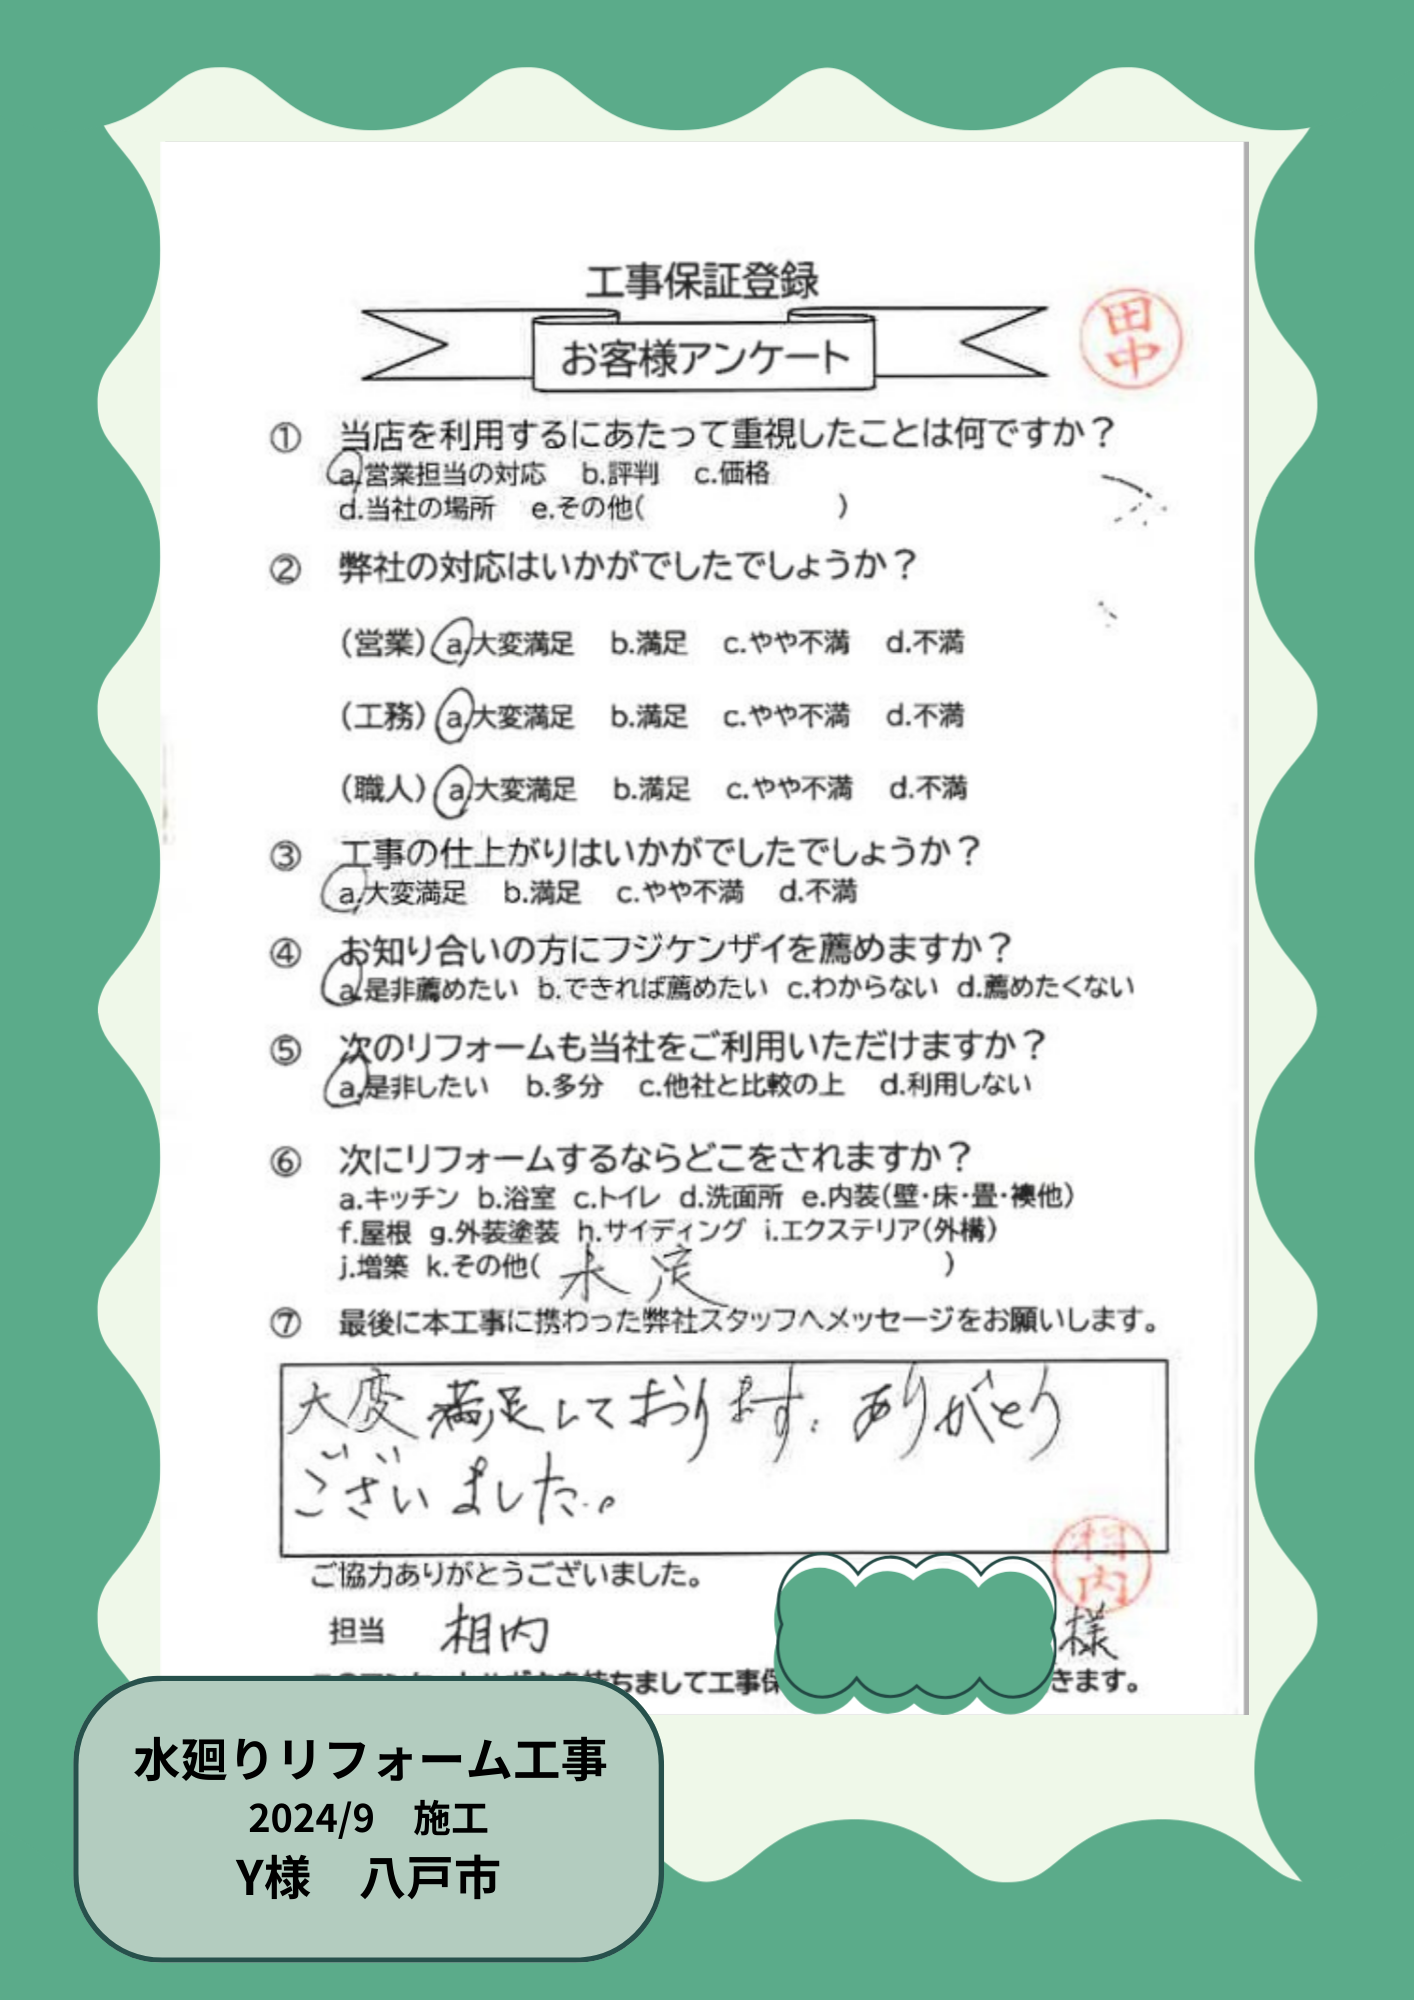 工事保証登録
お客様アンケート
田中
① 当店を利用するにあたって重視したことは何ですか？
a.営業担当の対応 b.評判 c.価格
d.当社の場所 e.その他( )
② 弊社の対応はいかがでしたでしょうか？
(営業) a.大変満足 b.満足 c.やや不満 d.不満
(工務) a.大変満足 b.満足 c.やや不満 d.不満
(職人) a.大変満足 b.満足 c.やや不満 d.不満
③ 工事の仕上がりはいかがでしたでしょうか？
a.大変満足 b.満足 c.やや不満 d.不満
④ お知り合いの方にフジケンザイを薦めますか？
a.是非薦めたい b.できれば薦めたい c.わからない d.薦めたくない
⑤ 次のリフォームも当社をご利用いただけますか？
a.是非したい b.多分 c.他社と比較の上 d.利用しない
⑥ 次にリフォームするならどこをされますか？
a.キッチン b.浴室 c.トイレ d.洗面所 e.内装(壁・床・畳・襖他)
f.屋根 g.外装塗装 h.サイディング i.エクステリア(外構)
j.増築 k.その他( 未定 )
⑦ 最後に本工事に携わった弊社スタッフへメッセージをお願いします。
大変満足しております。ありがとう
ございました。
相内
ご協力ありがとうございました。
担当 相内 様
ちまして工事保 きます。
水廻りリフォーム工事
2024/9 施工
Y様 八戸市